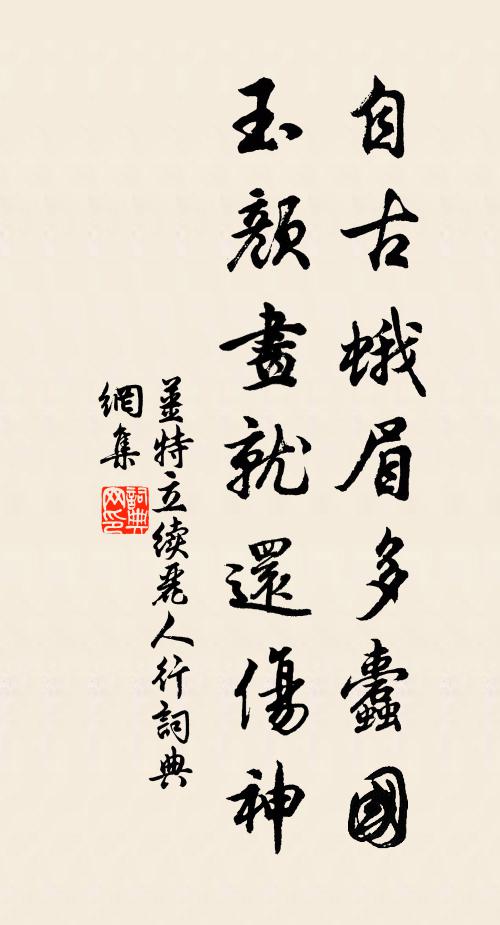 自古蛾眉多蠹國
玉顏畫就還傷神
姜特立續麗人行詞典
網集
詞典网印